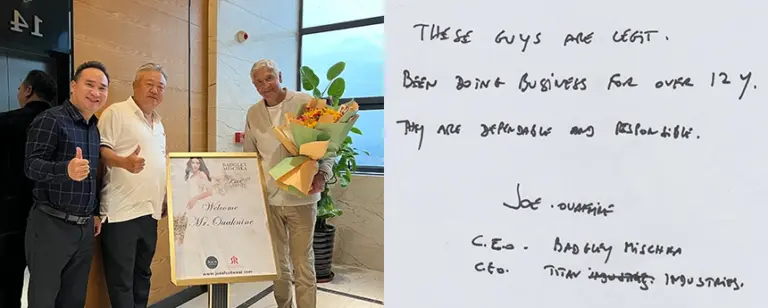 14
BADGLEY
MISCHKA
Welcome
Mr. Ouaknine
THESE GUYS ARE LEGIT.
BEEN DOING BUSINESS FOR OVER 12 Y.
THEY ARE DEPENDABLE AND RESPONSIBLE.
JOE
C.E.O. BADGLEY MISCHKA
CEO. TITAN INDUSTRIES.